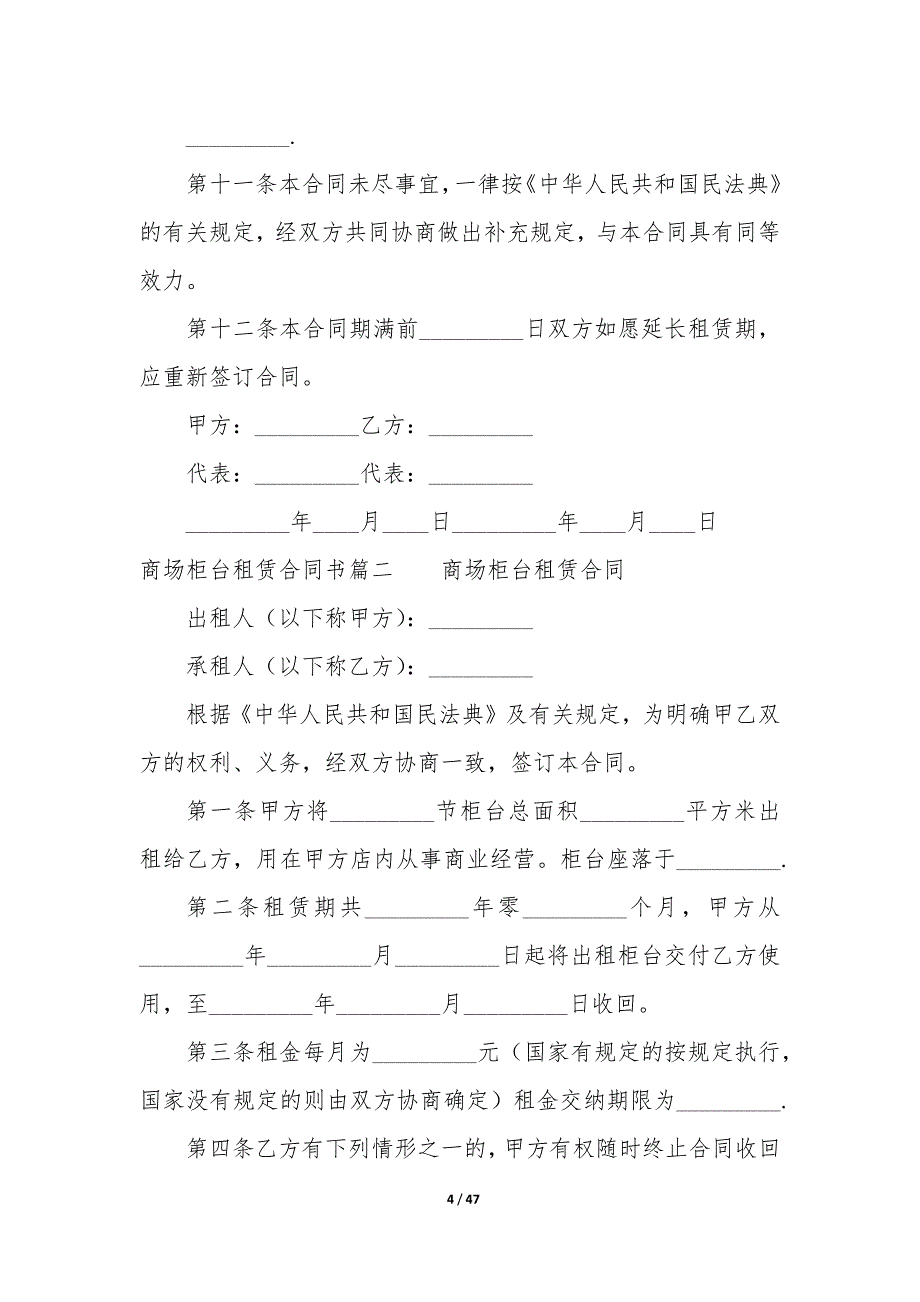 _________.
第十一条本合同未尽事宜，一律按《中华人民共和国民法典》
的有关规定，经双方共同协商做出补充规定，与本合同具有同等
效力。
第十二条本合同期满前_________日双方如愿延长租赁期，
应重新签订合同。
甲方：_________乙方：_________
代表：_________代表：_________
_________年____月____日_________年____月____日
商场柜台租赁合同书篇二　　商场柜台租赁合同
出租人（以下称甲方）：_________
承租人（以下称乙方）：_________
根据《中华人民共和国民法典》及有关规定，为明确甲乙双
方的权利、义务，经双方协商一致，签订本合同。
第一条甲方将_________节柜台总面积_________平方米出
租给乙方，用在甲方店内从事商业经营。柜台座落于_________.
第二条租赁期共_________年零_________个月，甲方从
_________年_________月_________日起将出租柜台交付乙方使
用，至_________年_________月_________日收回。
第三条租金每月为_________元（国家有规定的按规定执行，
国家没有规定的则由双方协商确定）租金交纳期限为_________.
第四条乙方有下列情形之一的，甲方有权随时终止合同收回
4 / 47